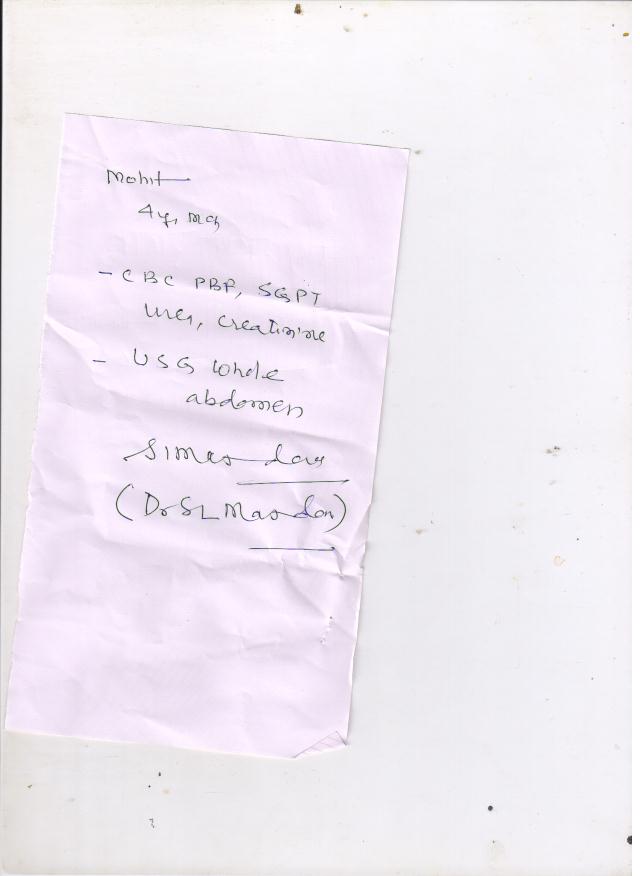 Mohit
4y, mch
- CBC PBF, SGPT
urea, creatinine
- USG whole
abdomen
(Dr SL Mandan)